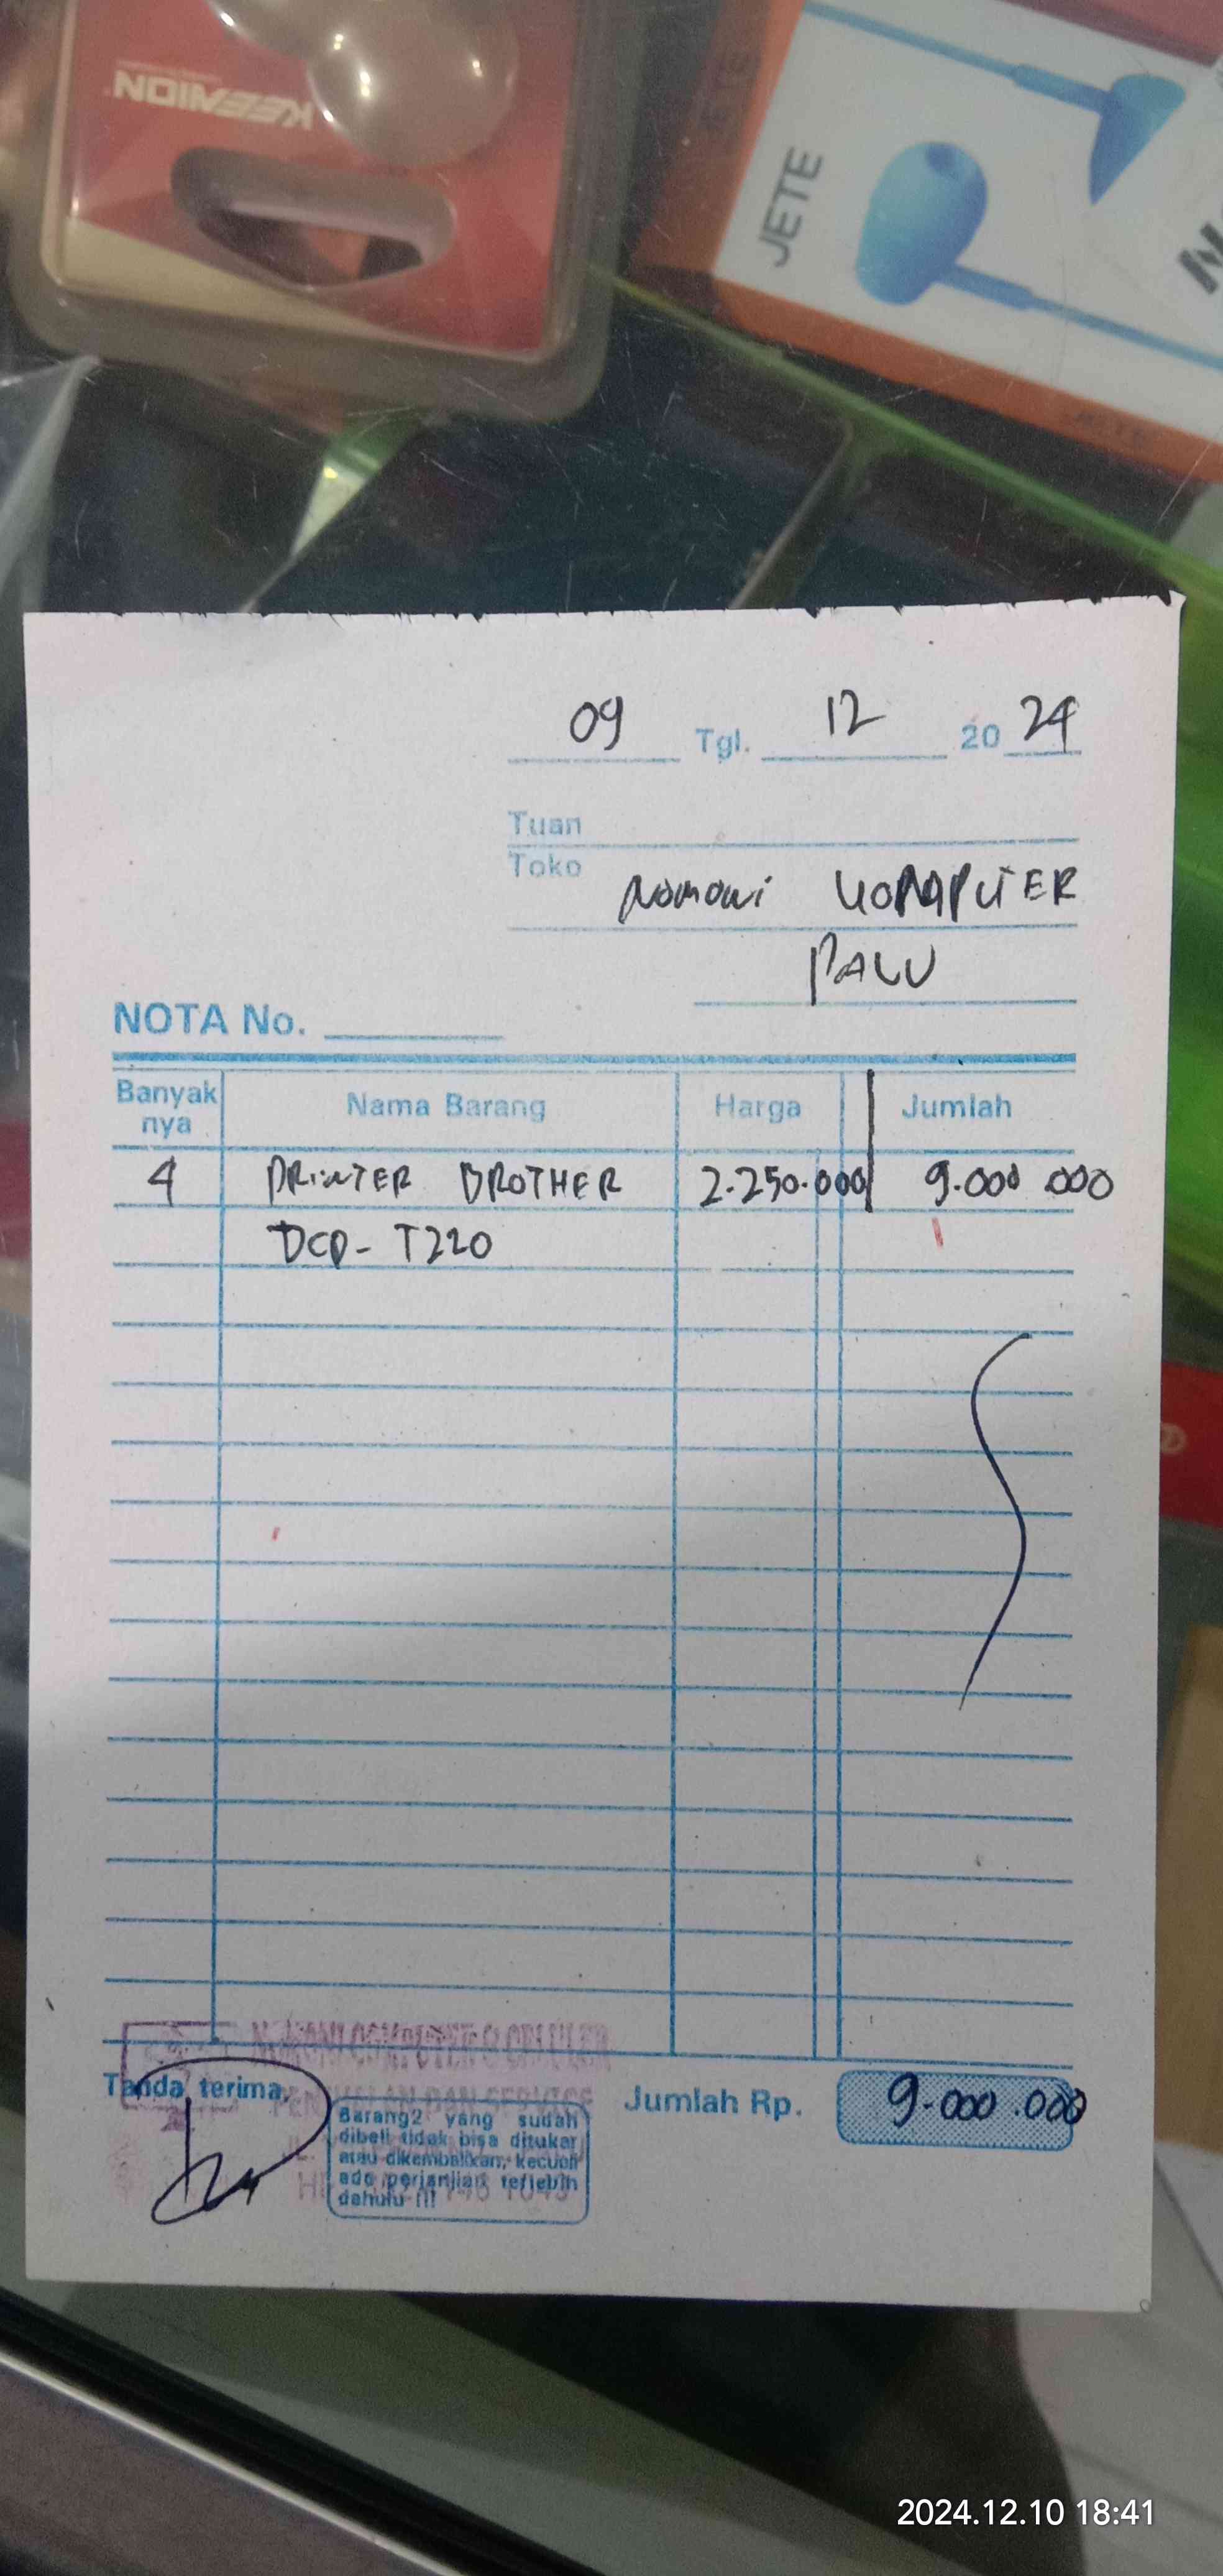 KEEMION
JETE
09 Tgl. 12 20 24
Tuan
Toko
Nomoni KOMPUTER
PALU
NOTA No.
Banyak nya Nama Barang Harga Jumlah
4 PRINTER BROTHER 2.250.000 9.000.000
DCP-T220
Tanda terima, Jumlah Rp. 9.000.000
Barang2 yang sudah
dibeli tidak bisa ditukar
atau dikembalikan, kecuali
ada perjanjian terlebih
dahulu !!!
2024.12.10 18:41